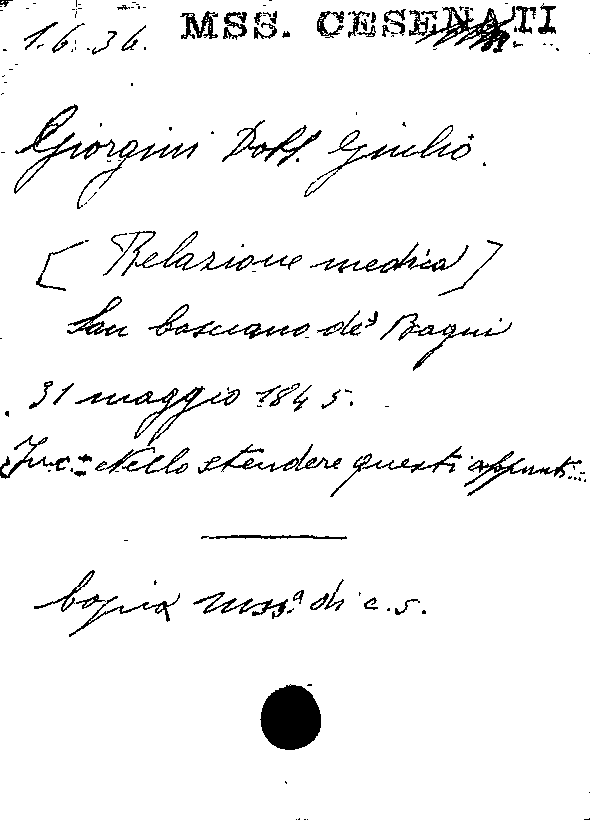 MSS. CESENATI
1.6.36.
Giorgini Dott. Giulio.
[Relazione medica]
San Casciano de' Bagni
31 maggio 1845.
Inc.: Nello stendere questi appunti...
Copia mssª. di c. 5.